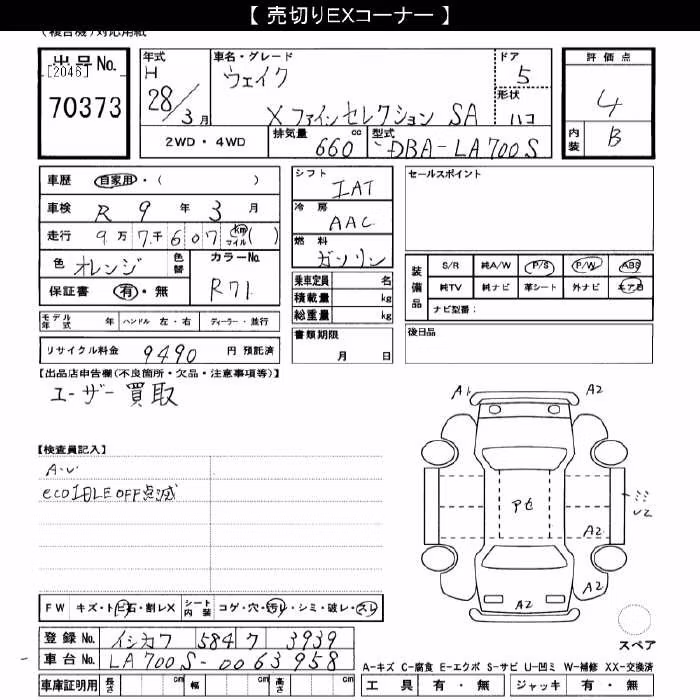 【 売切りEXコーナー 】
(複合機)対応用紙
出品No.
[2046]
70373
年式
H
28/3月
車名・グレード
ウェイク
X ファインセレクション SA
ドア
5
形状
ハコ
評価点
4
内装
B
2WD・4WD
排気量
660 cc
型式
DBA-LA700S
車歴 自家用・( )
車検 R 9 年 3 月
走行 9万7千607 km マイル ( )
色 オレンジ
色替
カラーNo.
R71
保証書 有・無
モデル年式 年 ハンドル 左・右 ディーラー・並行
リサイクル料金 9490 円 預託済
シフト
IAT
冷房
AAC
燃料
ガソリン
乗車定員 名
積載量 kg
総重量 kg
書類期限
月 日
セールスポイント
装備品
S/R 純A/W P/S P/W ABS
純TV 純ナビ 革シート 外ナビ エアB
ナビ型番:
後日品
【出品店申告欄(不良箇所・欠品・注意事項等)】
ユーザー買取
【検査員記入】
eco IDLE OFF点滅
A1
A2
A2
A2
A2
A2
スペア
FW キズ・トビ石・割レX シート内装 コゲ・穴・汚レ・シミ・破レ・スレ
登録No. イシカワ 584 ワ 3939
車台No. LA700S-0063958
車庫証明用 長さ cm 幅 cm 高さ cm
A-キズ C-腐食 E-エクボ S-サビ U-凹ミ W-補修 XX-交換済
工具 有・無 ジャッキ 有・無